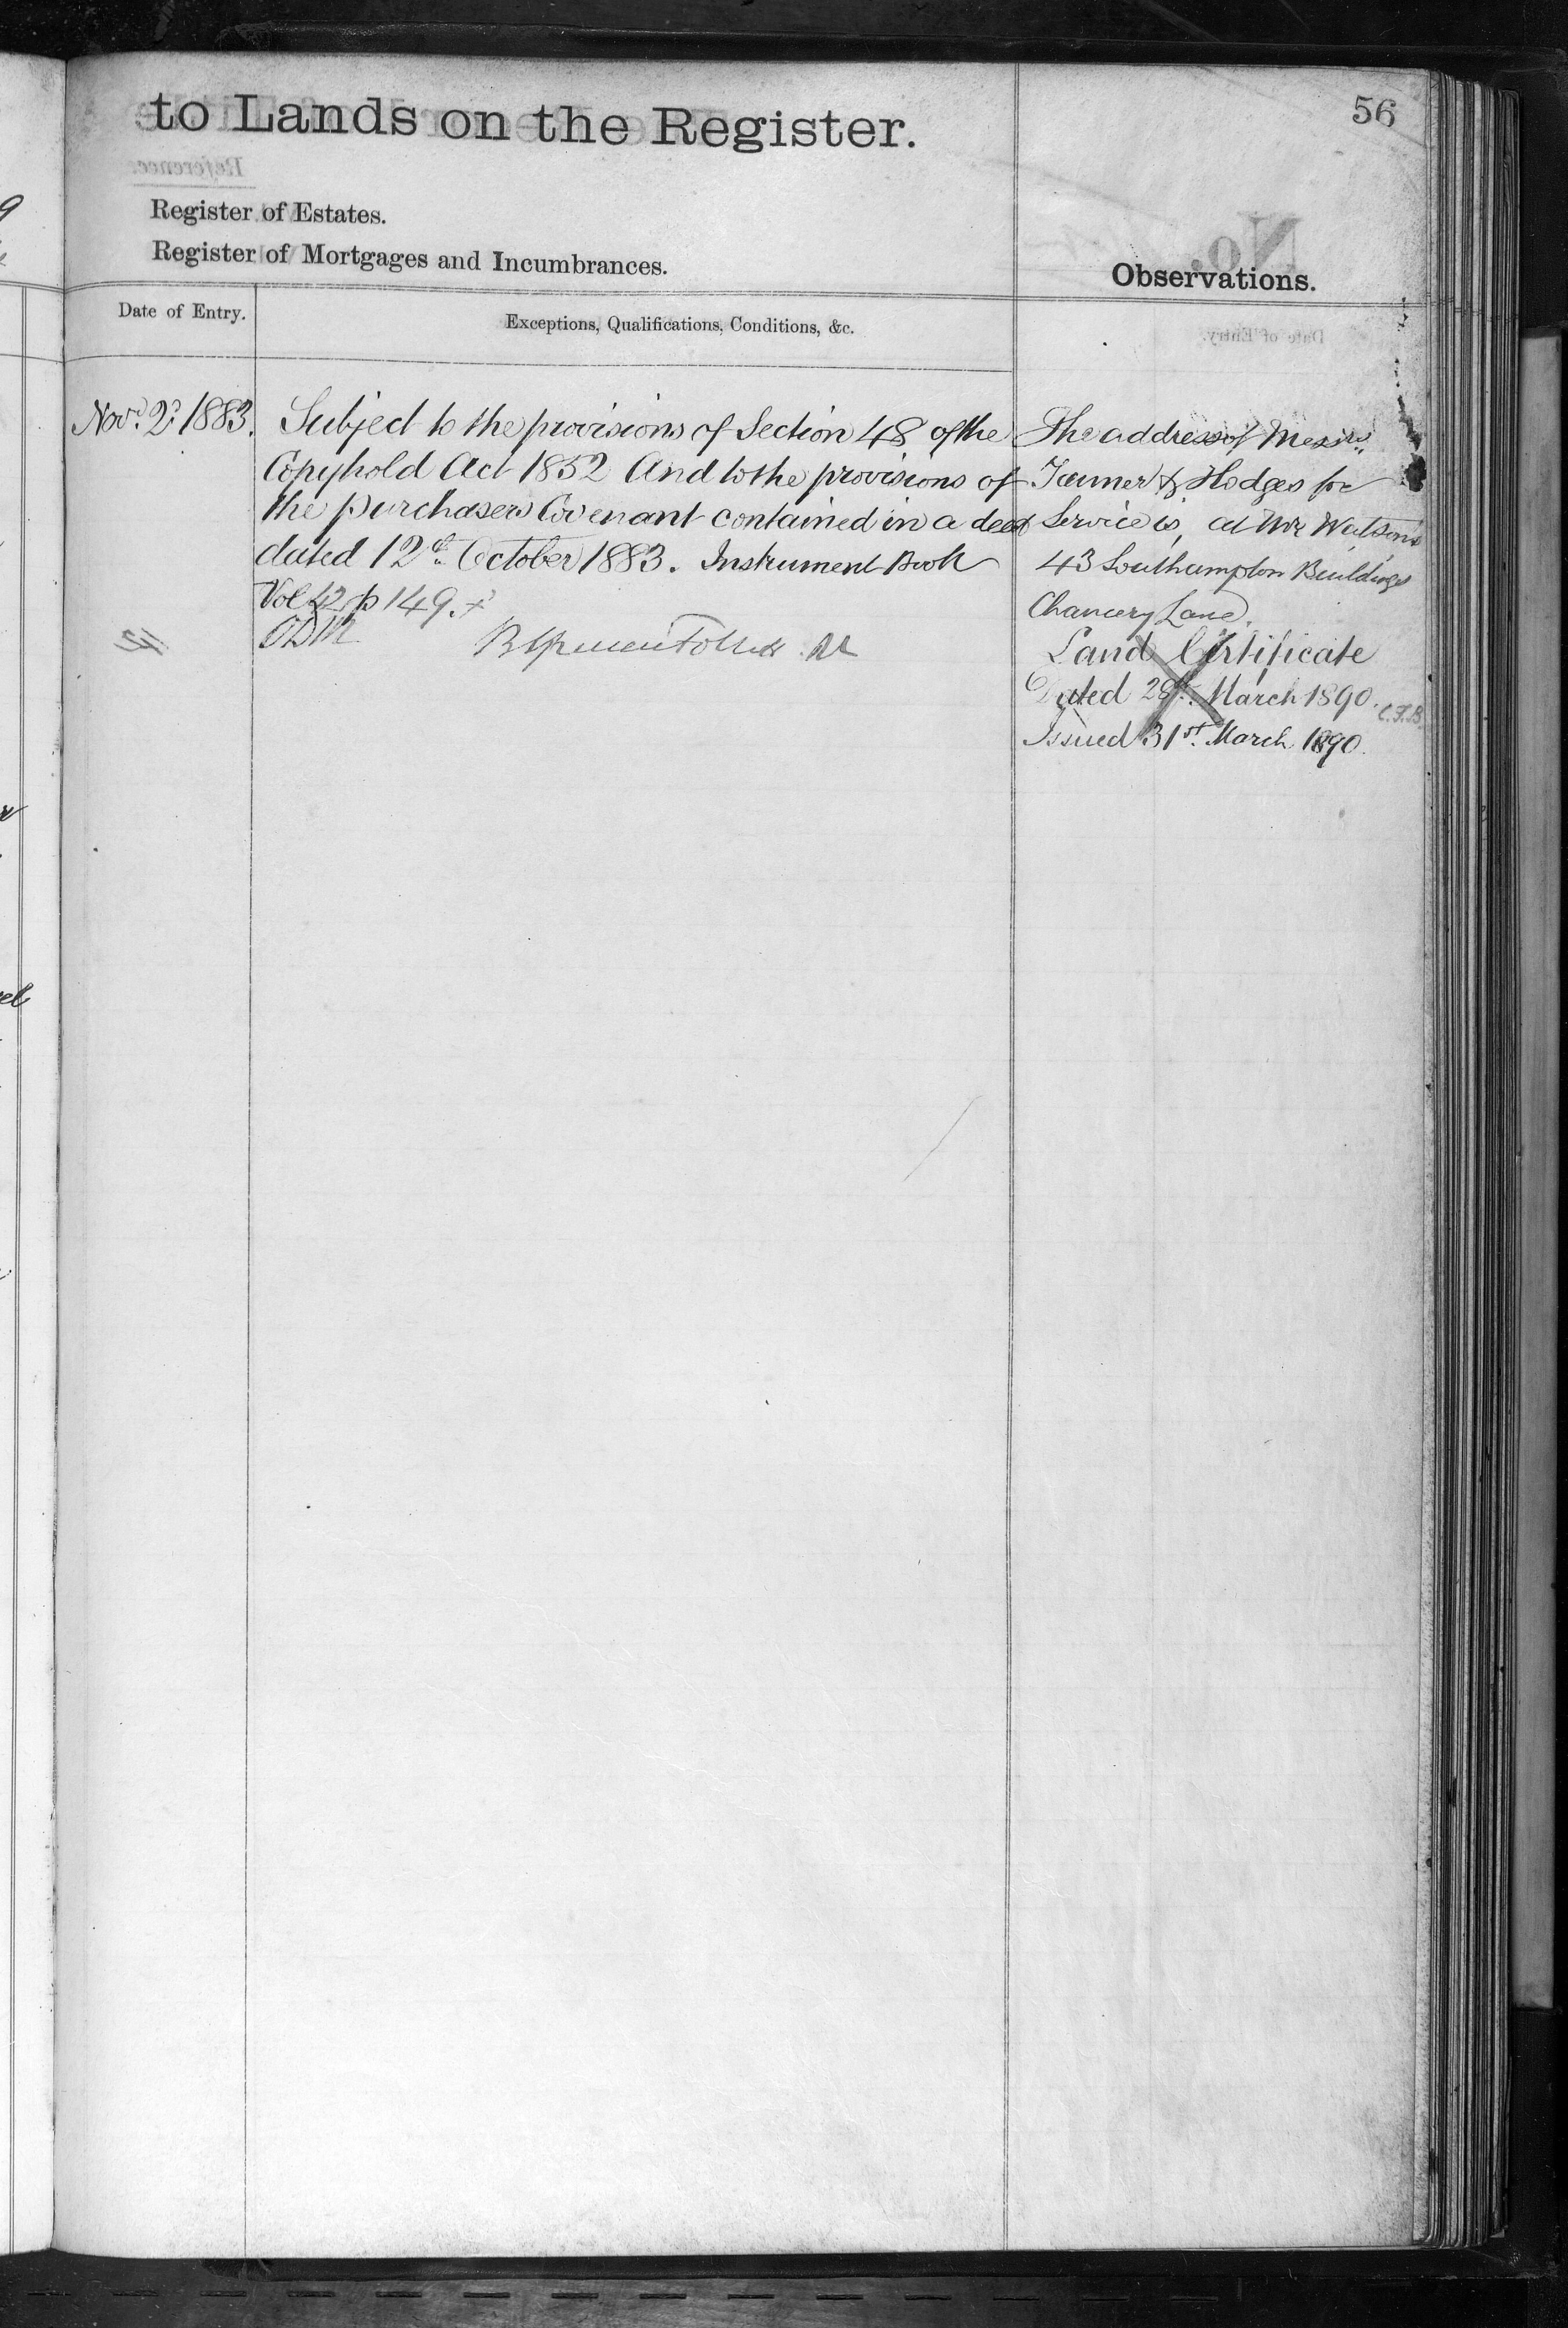 56
to Lands on the Register.
Register of Estates.
Register of Mortgages and Incumbrances.
Observations.
Date of Entry.
Exceptions, Qualifications, Conditions, &c.
Novr. 2d 1883.
Subject to the provisions of Section 48 of the
Copyhold Act 1852 And to the provisions of
the purchasers Covenant contained in a deed
dated 12th October 1883. Instrument Book
Vol 42 p 149. x
The address of Messrs.
&  Hodges for
Service is, at Mr Watson's
43 Southampton Buildings
Chancery Lane.
Land Certificate
Dated 28th. March 1890.
Issued 31st. March 1890.